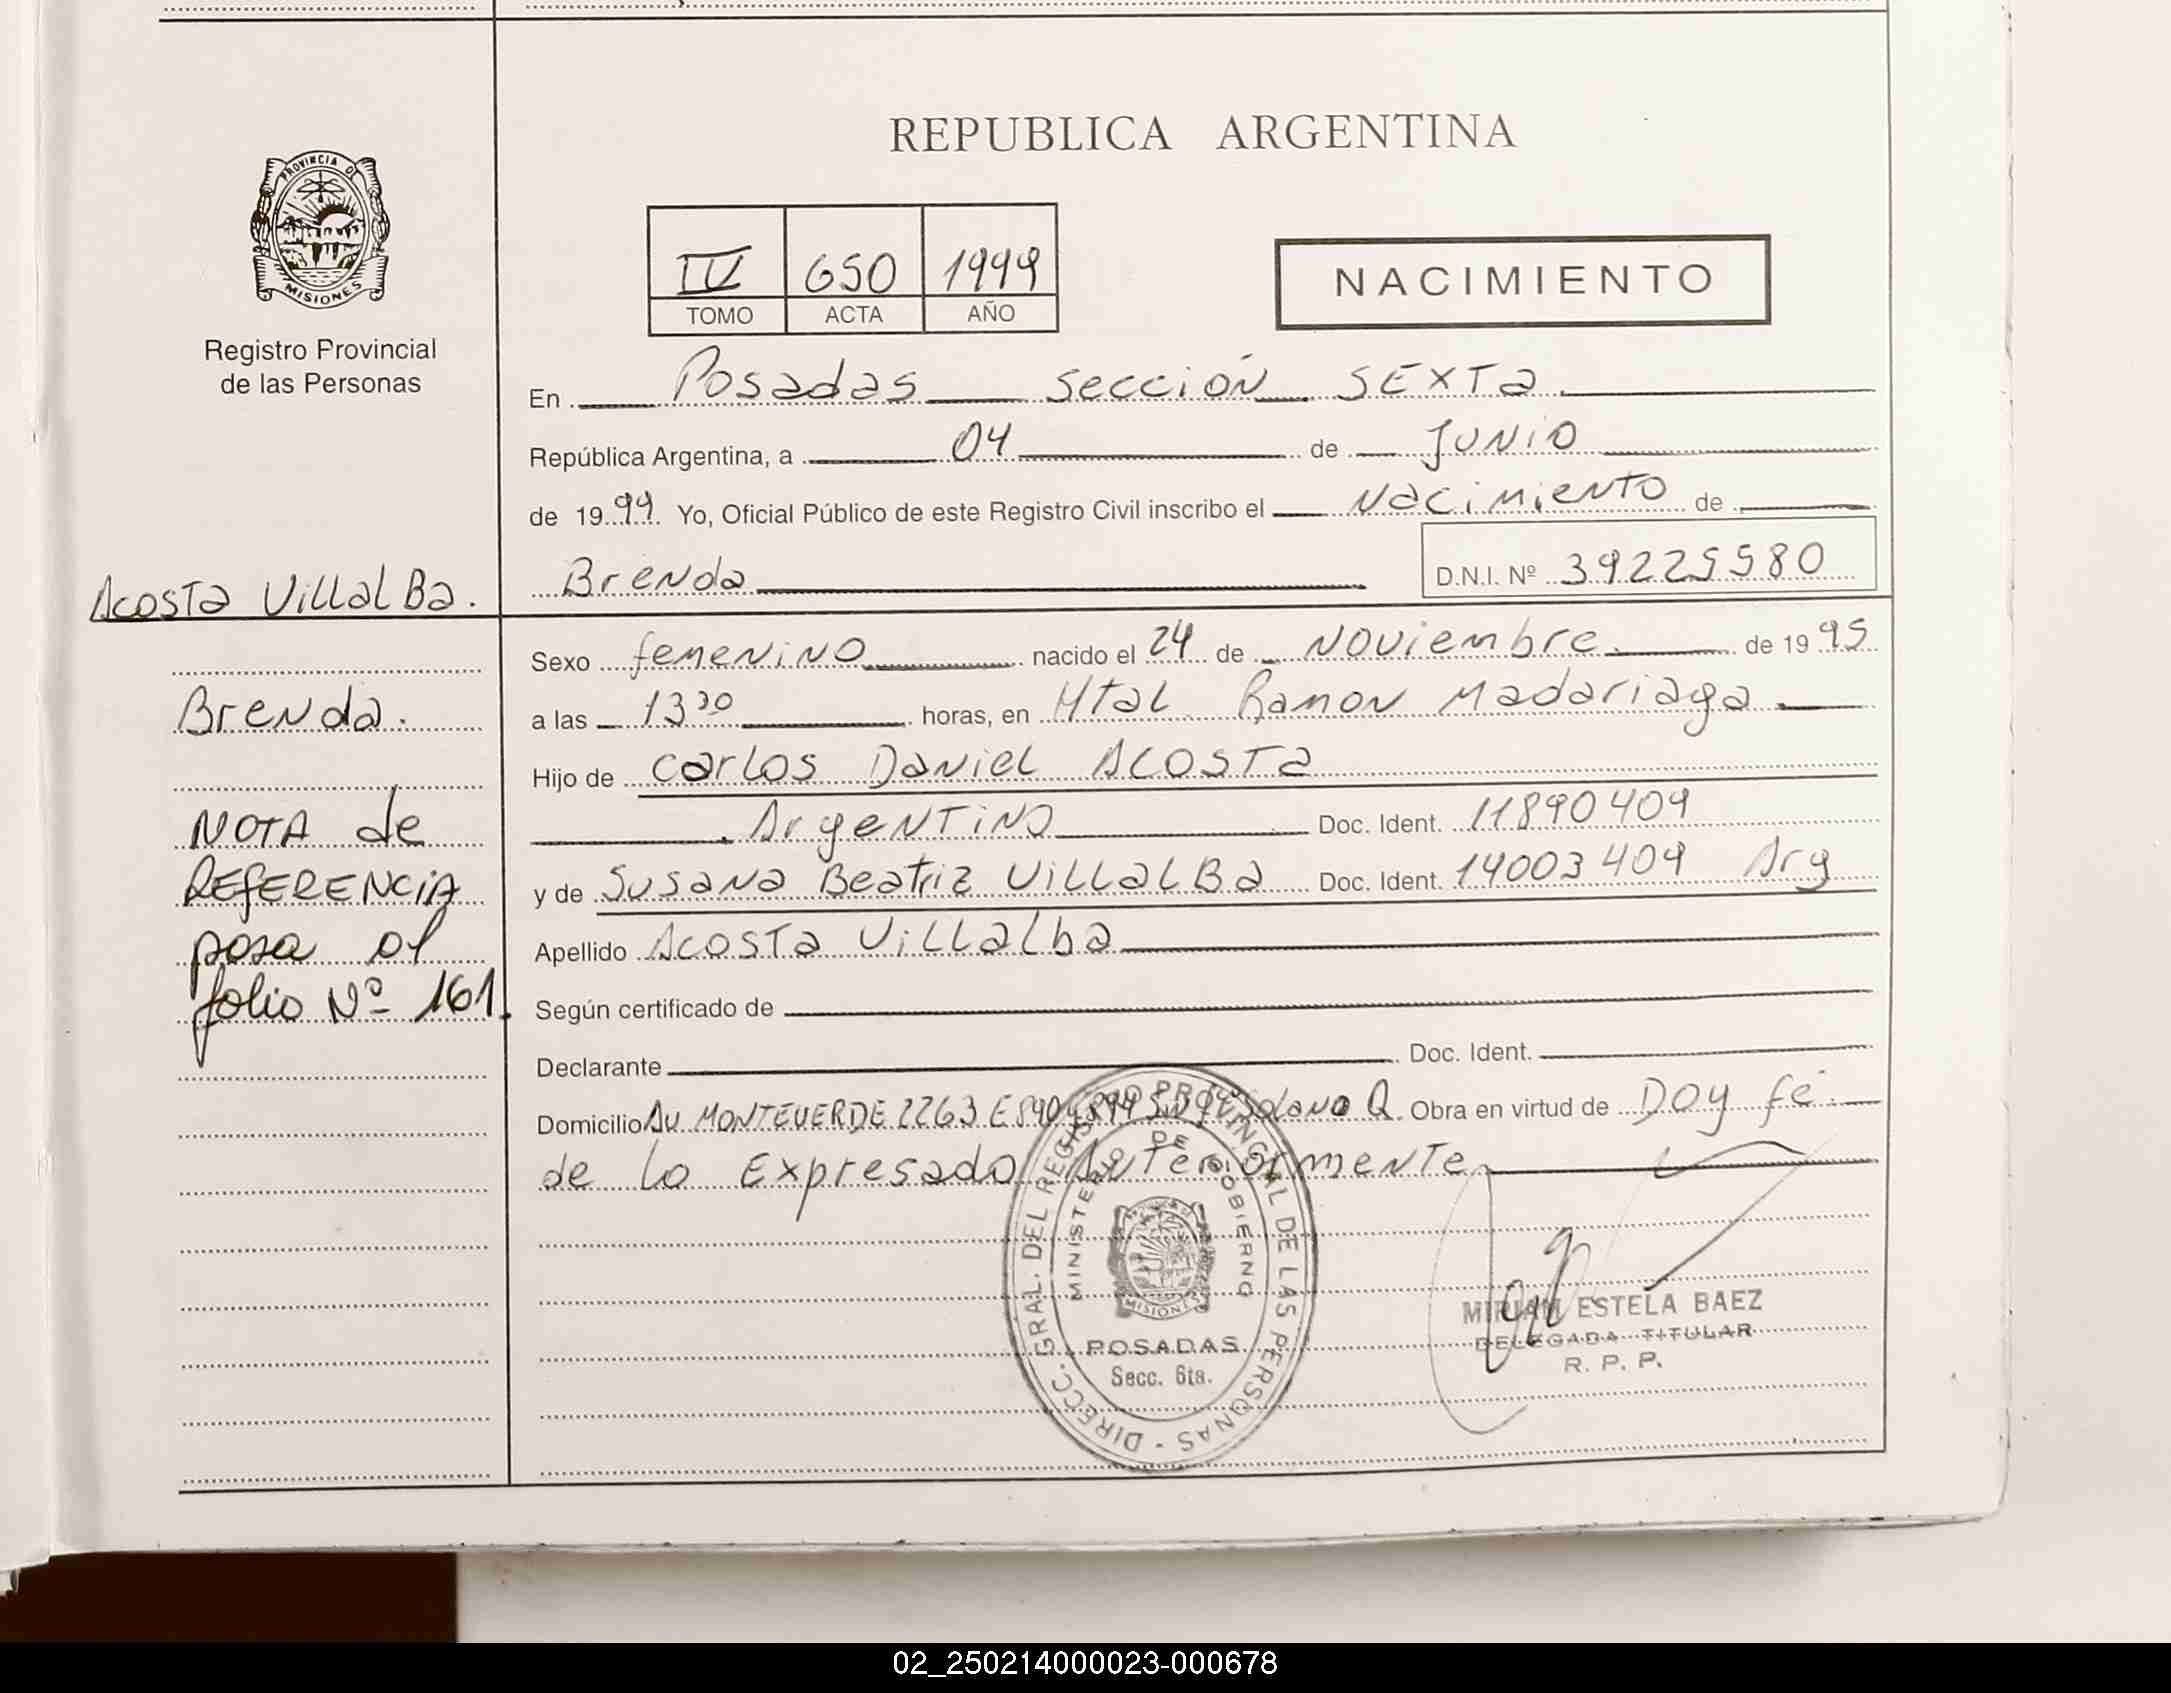 REPUBLICA ARGENTINA
PROVINCIA DE
MISIONES
Registro Provincial
de las Personas
IV 650 1999
TOMO ACTA AÑO
NACIMIENTO
En Posadas Sección SEXTA
República Argentina, a 04 de JUNIO
de 1999. Yo, Oficial Público de este Registro Civil inscribo el Nacimiento de
Brenda D.N.I. Nº 39225580
Acosta Villalba.
Sexo femenino nacido el 24 de Noviembre de 1995
Brenda.
a las 13 30 horas, en Htal Ramon Madariaga
Hijo de Carlos Daniel Acosta
Argentino Doc. Ident. 11890409
y de Susana Beatriz Villalba Doc. Ident. 14003409 Arg
Apellido Acosta Villalba
NOTA de
REFERENCIA
pasa al
folio Nº 161.
Según certificado de
Declarante Doc. Ident.
Domicilio AV MONTEVERDE 2263 Solano Q. Obra en virtud de Doy fé
de lo Expresado Anteriormente
DIRECC. GRAL. DEL REGISTRO PROVINCIAL DE LAS PERSONAS
MINISTERIO DE GOBIERNO
MISIONES
POSADAS
Secc. 6ta.
MIRIAM ESTELA BAEZ
DELEGADA TITULAR
R. P. P.
02_250214000023-000678